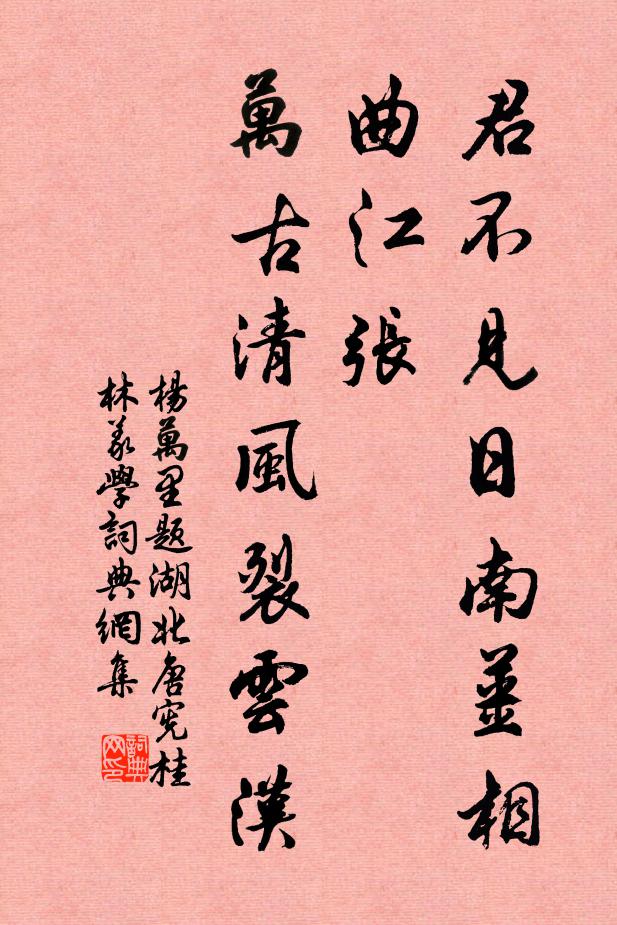 君不見日南薑相
曲江張
萬古清風裂雲漢
楊萬里題湖北唐憲桂
林義學詞典網集
詞典
网印